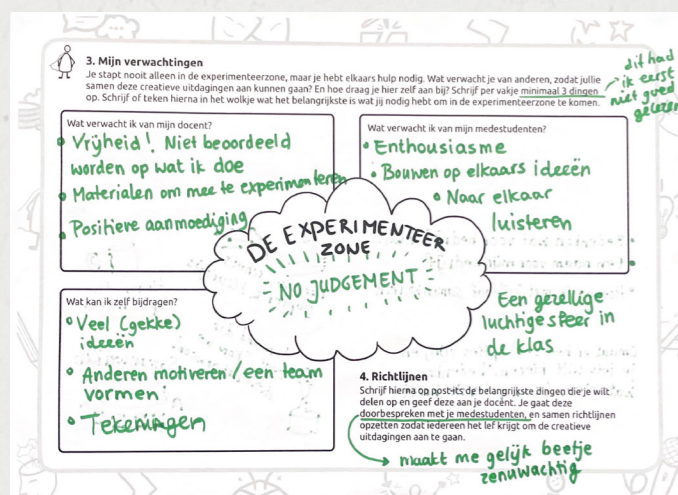 3. Mijn verwachtingen
Je stapt nooit alleen in de experimenteerzone, maar je hebt elkaars hulp nodig. Wat verwacht je van anderen, zodat jullie
samen deze creatieve uitdagingen aan kunnen gaan? En hoe draag je hier zelf aan bij? Schrijf per vakje minimaal 3 dingen
op. Schrijf of teken hierna in het wolkje wat het belangrijkste is wat jij nodig hebt om in de experimenteerzone te komen.
dit had
ik eerst
niet goed
gelezen
Wat verwacht ik van mijn docent?
• Vrijheid! Niet beoordeeld
worden op wat ik doe
• Materialen om mee te experimenteren
• Positieve aanmoediging
Wat verwacht ik van mijn medestudenten?
• Enthousiasme
• Bouwen op elkaars ideeën
• Naar elkaar
luisteren
DE EXPERIMENTEER
ZONE
NO JUDGEMENT
Wat kan ik zelf bijdragen?
• Veel (gekke)
ideeën
• Anderen motiveren / een team
vormen
• Tekeningen
Een gezellige
luchtige sfeer in
de klas
4. Richtlijnen
Schrijf hierna op post-its de belangrijkste dingen die je wilt
delen op en geef deze aan je docent. Je gaat deze
doorbespreken met je medestudenten, en samen richtlijnen
opzetten zodat iedereen het lef krijgt om de creatieve
uitdagingen aan te gaan.
maakt me gelijk beetje
zenuwachtig